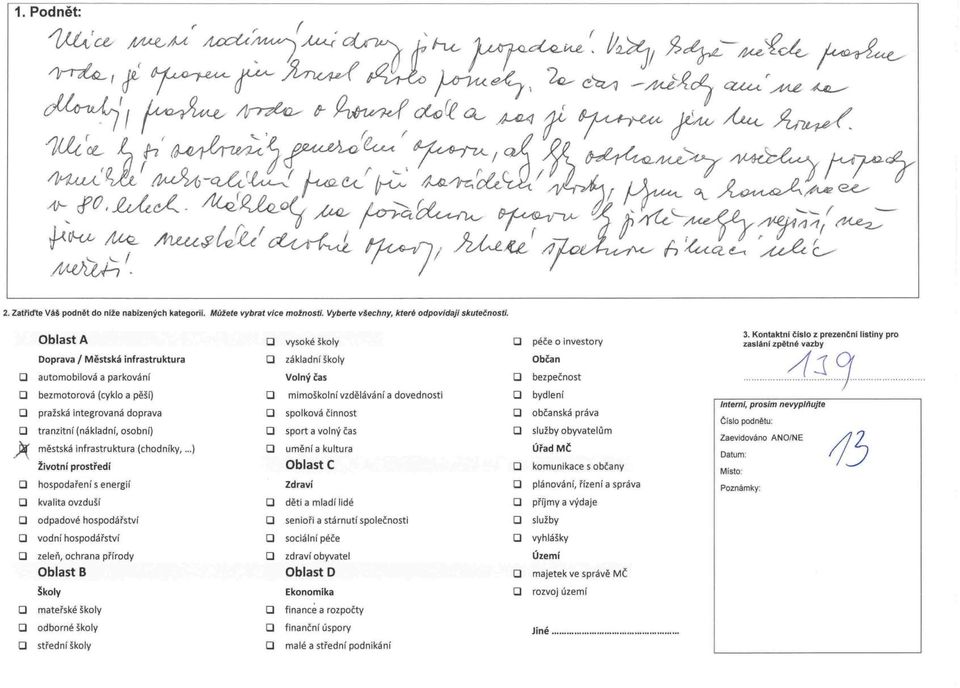 1. Podnět:
Ulice mezi rodinnými domy jsou propadané. Vždy, když někde praskne
voda, je opraven jen kousek okolo poruchy. Za čas - někdy ani ne za
dlouhý, praskne voda o kousek dál a zas je opraven jen ten kousek.
Ulice by si zasloužily generální opravu, aby byly odstraněny všechny propady
vzniklé nekvalitní prací při zavádění vody, plynu a kanalizace
v 80. letech. Náklady na pořádnou opravu by jistě nebyly vyšší, než
jsou na neustálé drobné opravy, které špatnou situaci ulic
neřeší.
2. Zatřiďte Váš podnět do níže nabízených kategorií. Můžete vybrat více možností. Vyberte všechny, které odpovídají skutečnosti.
Oblast A
Doprava / Městská infrastruktura
automobilová a parkování
bezmotorová (cyklo a pěší)
pražská integrovaná doprava
tranzitní (nákladní, osobní)
městská infrastruktura (chodníky, ...)
Životní prostředí
hospodaření s energií
kvalita ovzduší
odpadové hospodářství
vodní hospodářství
zeleň, ochrana přírody
Oblast B
Školy
mateřské školy
odborné školy
střední školy
vysoké školy
základní školy
Volný čas
mimoškolní vzdělávání a dovednosti
spolková činnost
sport a volný čas
umění a kultura
Oblast C
Zdraví
děti a mladí lidé
senioři a stárnutí společnosti
sociální péče
zdraví obyvatel
Oblast D
Ekonomika
finance a rozpočty
finanční úspory
malé a střední podnikání
péče o investory
Občan
bezpečnost
bydlení
občanská práva
služby obyvatelům
Úřad MČ
komunikace s občany
plánování, řízení a správa
příjmy a výdaje
služby
vyhlášky
Území
majetek ve správě MČ
rozvoj území
Jiné ..........................................
3. Kontaktní číslo z prezenční listiny pro
zaslání zpětné vazby
139
Interní, prosím nevyplňujte
Číslo podnětu:
Zaevidováno ANO/NE
Datum:
Místo:
Poznámky:
13